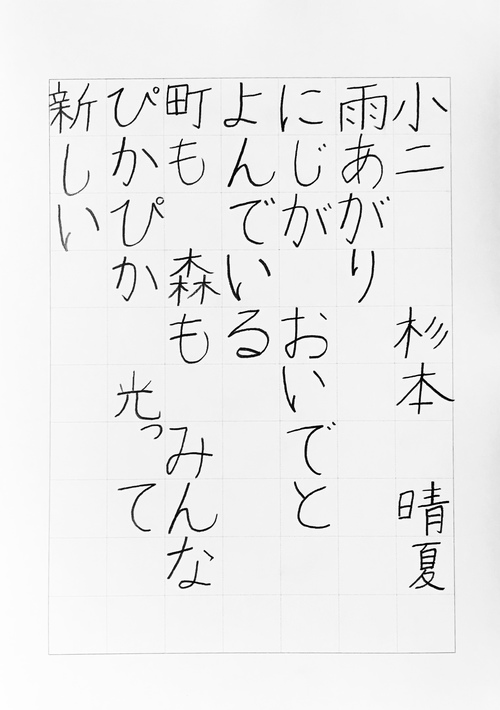 小二　杉本　晴夏
雨あがり
にじが　おいでと
よんでいる
町も　森も　みんな
ぴかぴか　光って
新しい